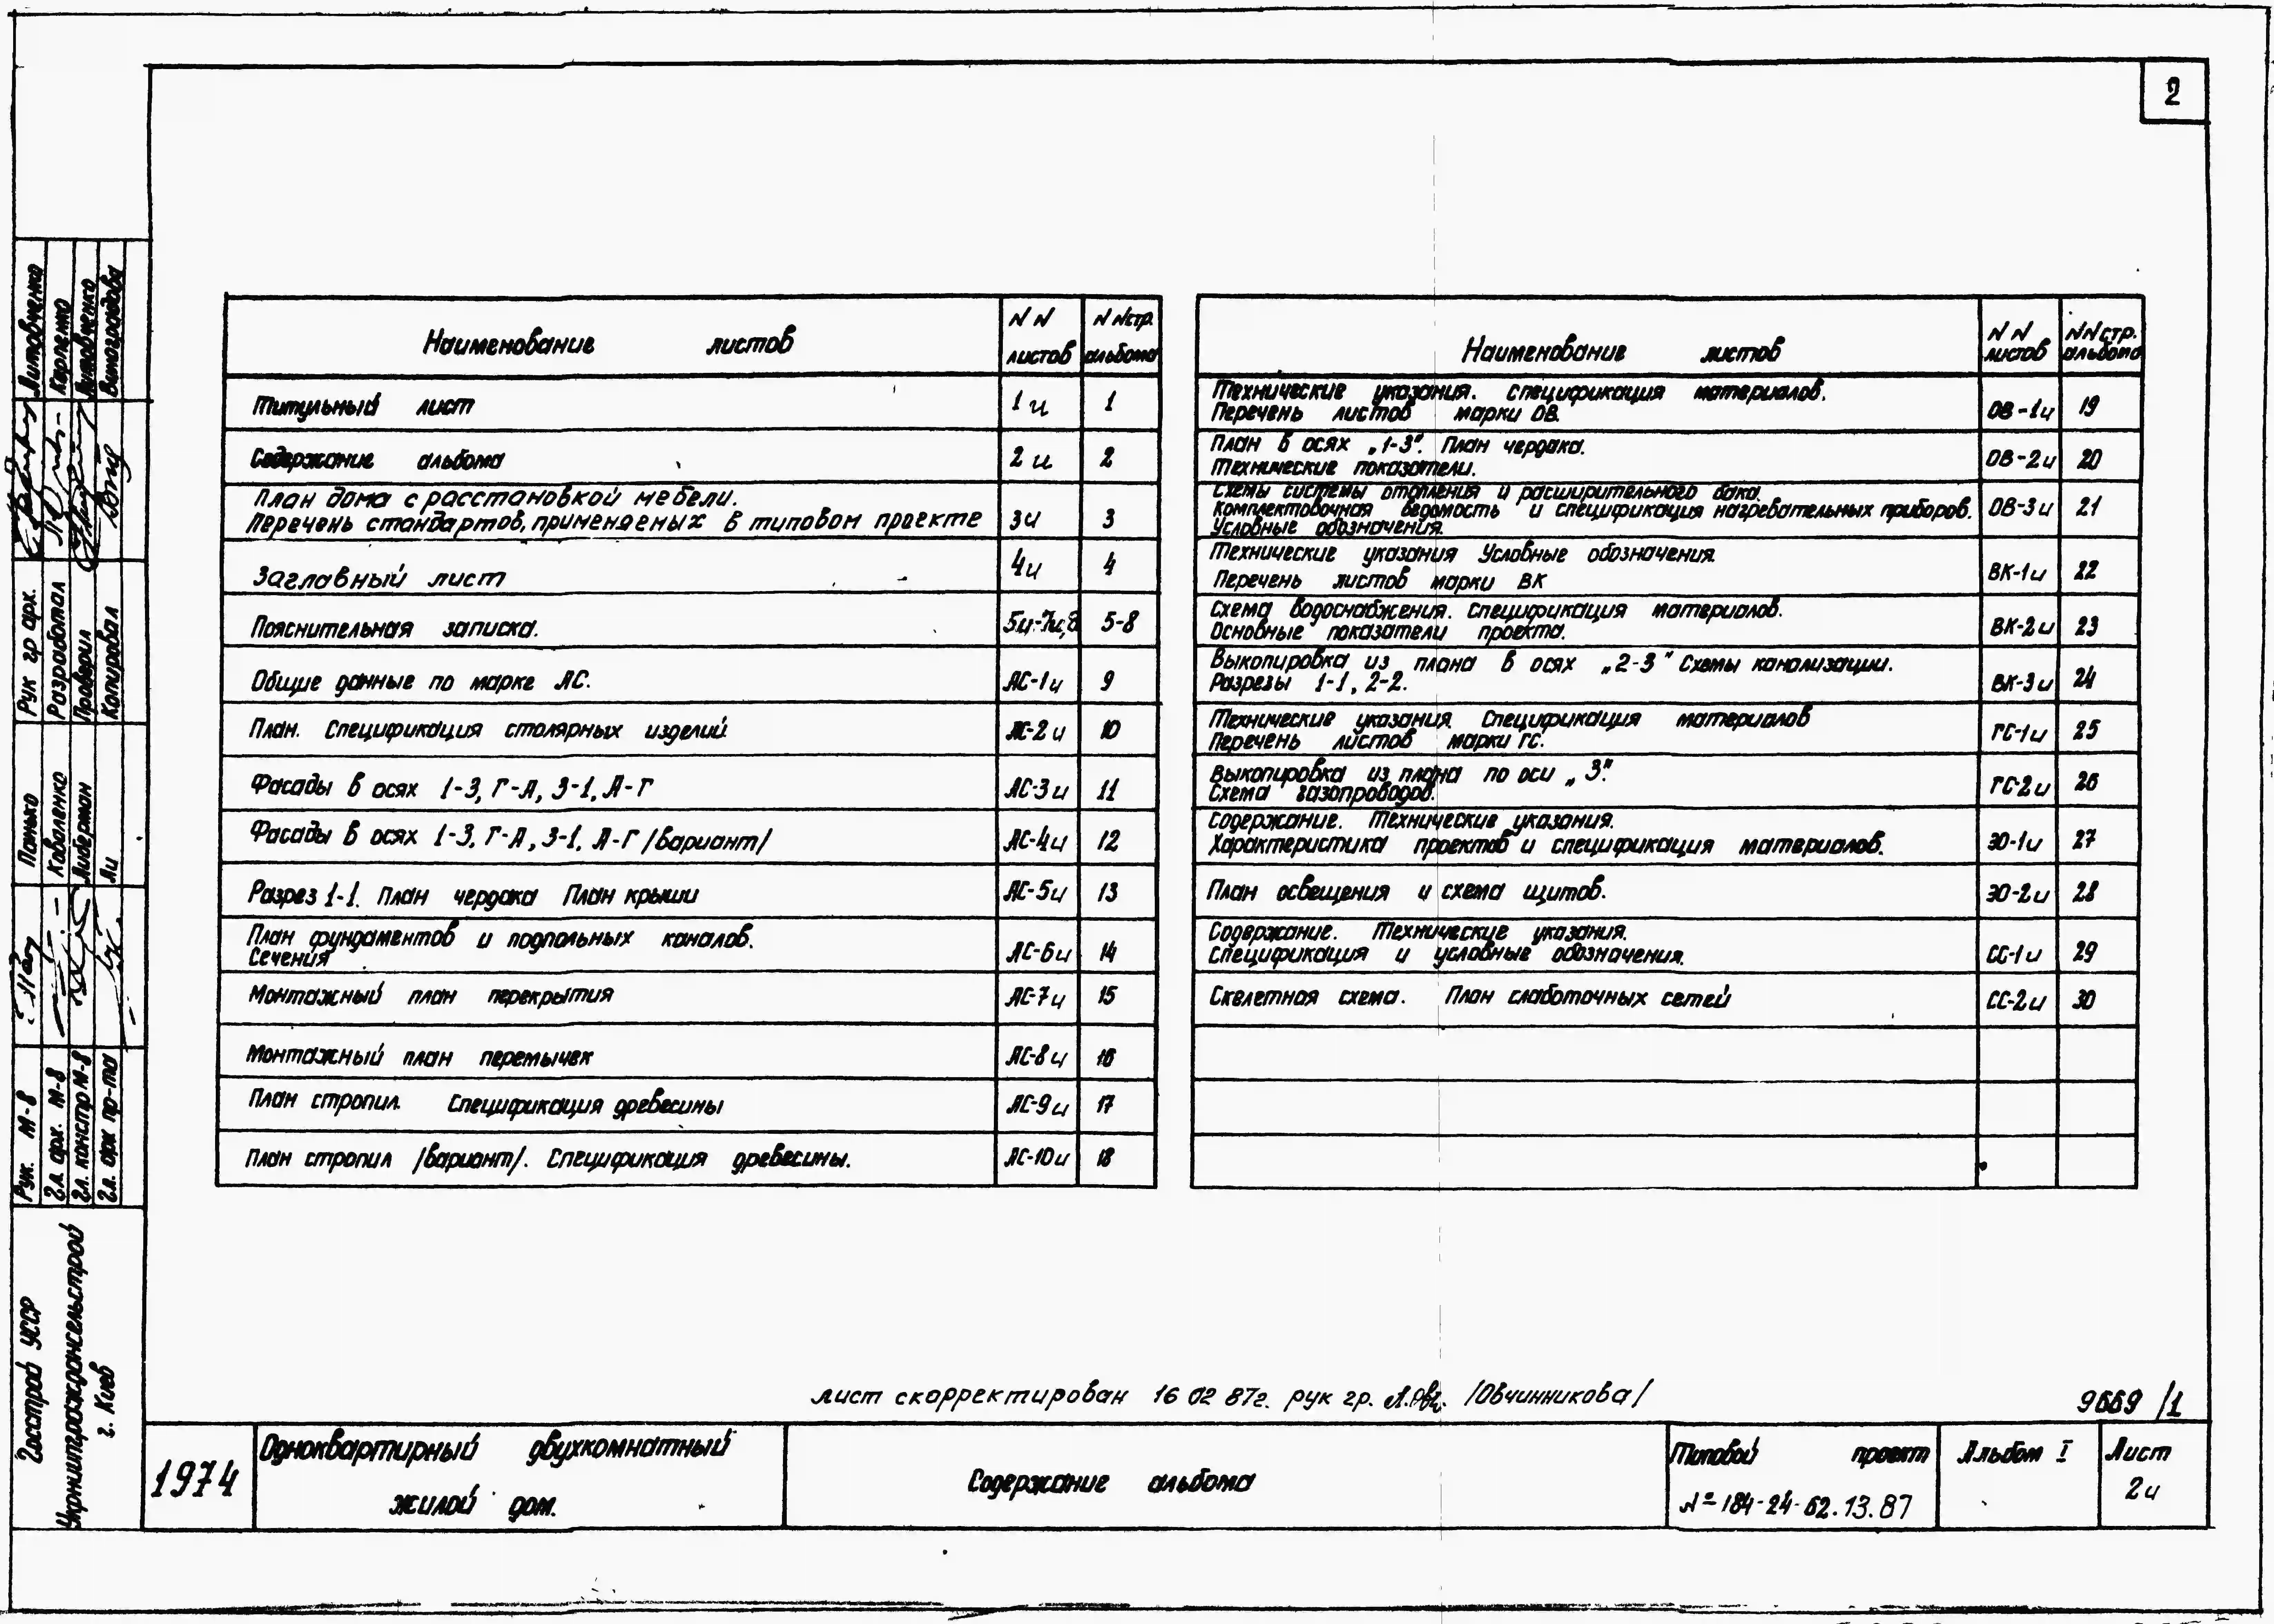 2
Наименование листов
NN листов
NN стр. альбома
Титульный лист 1и 1
Содержание альбома 2и 2
План дома с расстановкой мебели.
Перечень стандартов, применяемых в типовом проекте 3и 3
Заглавный лист 4и 4
Пояснительная записка. 5и-7и,8 5-8
Общие данные по марке АС. АС-1и 9
План. Спецификация столярных изделий АС-2и 10
Фасады в осях 1-3, Г-А, 3-1, А-Г АС-3и 11
Фасады в осях 1-3, Г-А, 3-1, А-Г /вариант/ АС-4и 12
Разрез 1-1. План чердака План крыши АС-5и 13
План фундаментов и подпольных каналов.
Сечения АС-6и 14
Монтажный план перекрытия АС-7и 15
Монтажный план перемычек АС-8и 16
План стропил. Спецификация древесины АС-9и 17
План стропил /вариант/. Спецификация древесины. АС-10и 18
Наименование листов
NN листов
NN стр. альбома
Технические указания. Спецификация материалов.
Перечень листов марки ОВ. ОВ-1и 19
План в осях „1-3". План чердака.
Технические показатели. ОВ-2и 20
Схемы системы отопления и расширительного бака.
Комплектовочная ведомость и спецификация нагревательных приборов.
Условные обозначения. ОВ-3и 21
Технические указания Условные обозначения.
Перечень листов марки ВК ВК-1и 22
Схема водоснабжения. Спецификация материалов.
Основные показатели проекта. ВК-2и 23
Выкопировка из плана в осях „2-3" Схемы канализации.
Разрезы 1-1, 2-2. ВК-3и 24
Технические указания. Спецификация материалов
Перечень листов марки ГС. ГС-1и 25
Выкопировка из плана по оси „3".
Схема газопроводов. ГС-2и 26
Содержание. Технические указания.
Характеристика проектов и спецификация материалов. ЭО-1и 27
План освещения и схема щитов. ЭО-2и 28
Содержание. Технические указания.
Спецификация и условные обозначения. СС-1и 29
Скелетная схема. План слаботочных сетей СС-2и 30
Лист скорректирован 16 02 87г. рук гр. /Овчинникова/
9669/1
1974
Одноквартирный двухкомнатный
жилой дом.
Содержание альбома
Типовой проект
№-184-24-62.13.87
Альбом I
Лист
2и
Рук гр арх. Литовченко
Разработал Карпенко
Проверил Литовченко
Копировал Виноградова
Рук. М-8 Панько
Гл. арх. М-8 Коваленко
Гл. констр М-8 Либерман
Гл. арх пр-та Ли
Госстрой УССР
Укрниипрограждансельстрой
г. Киев